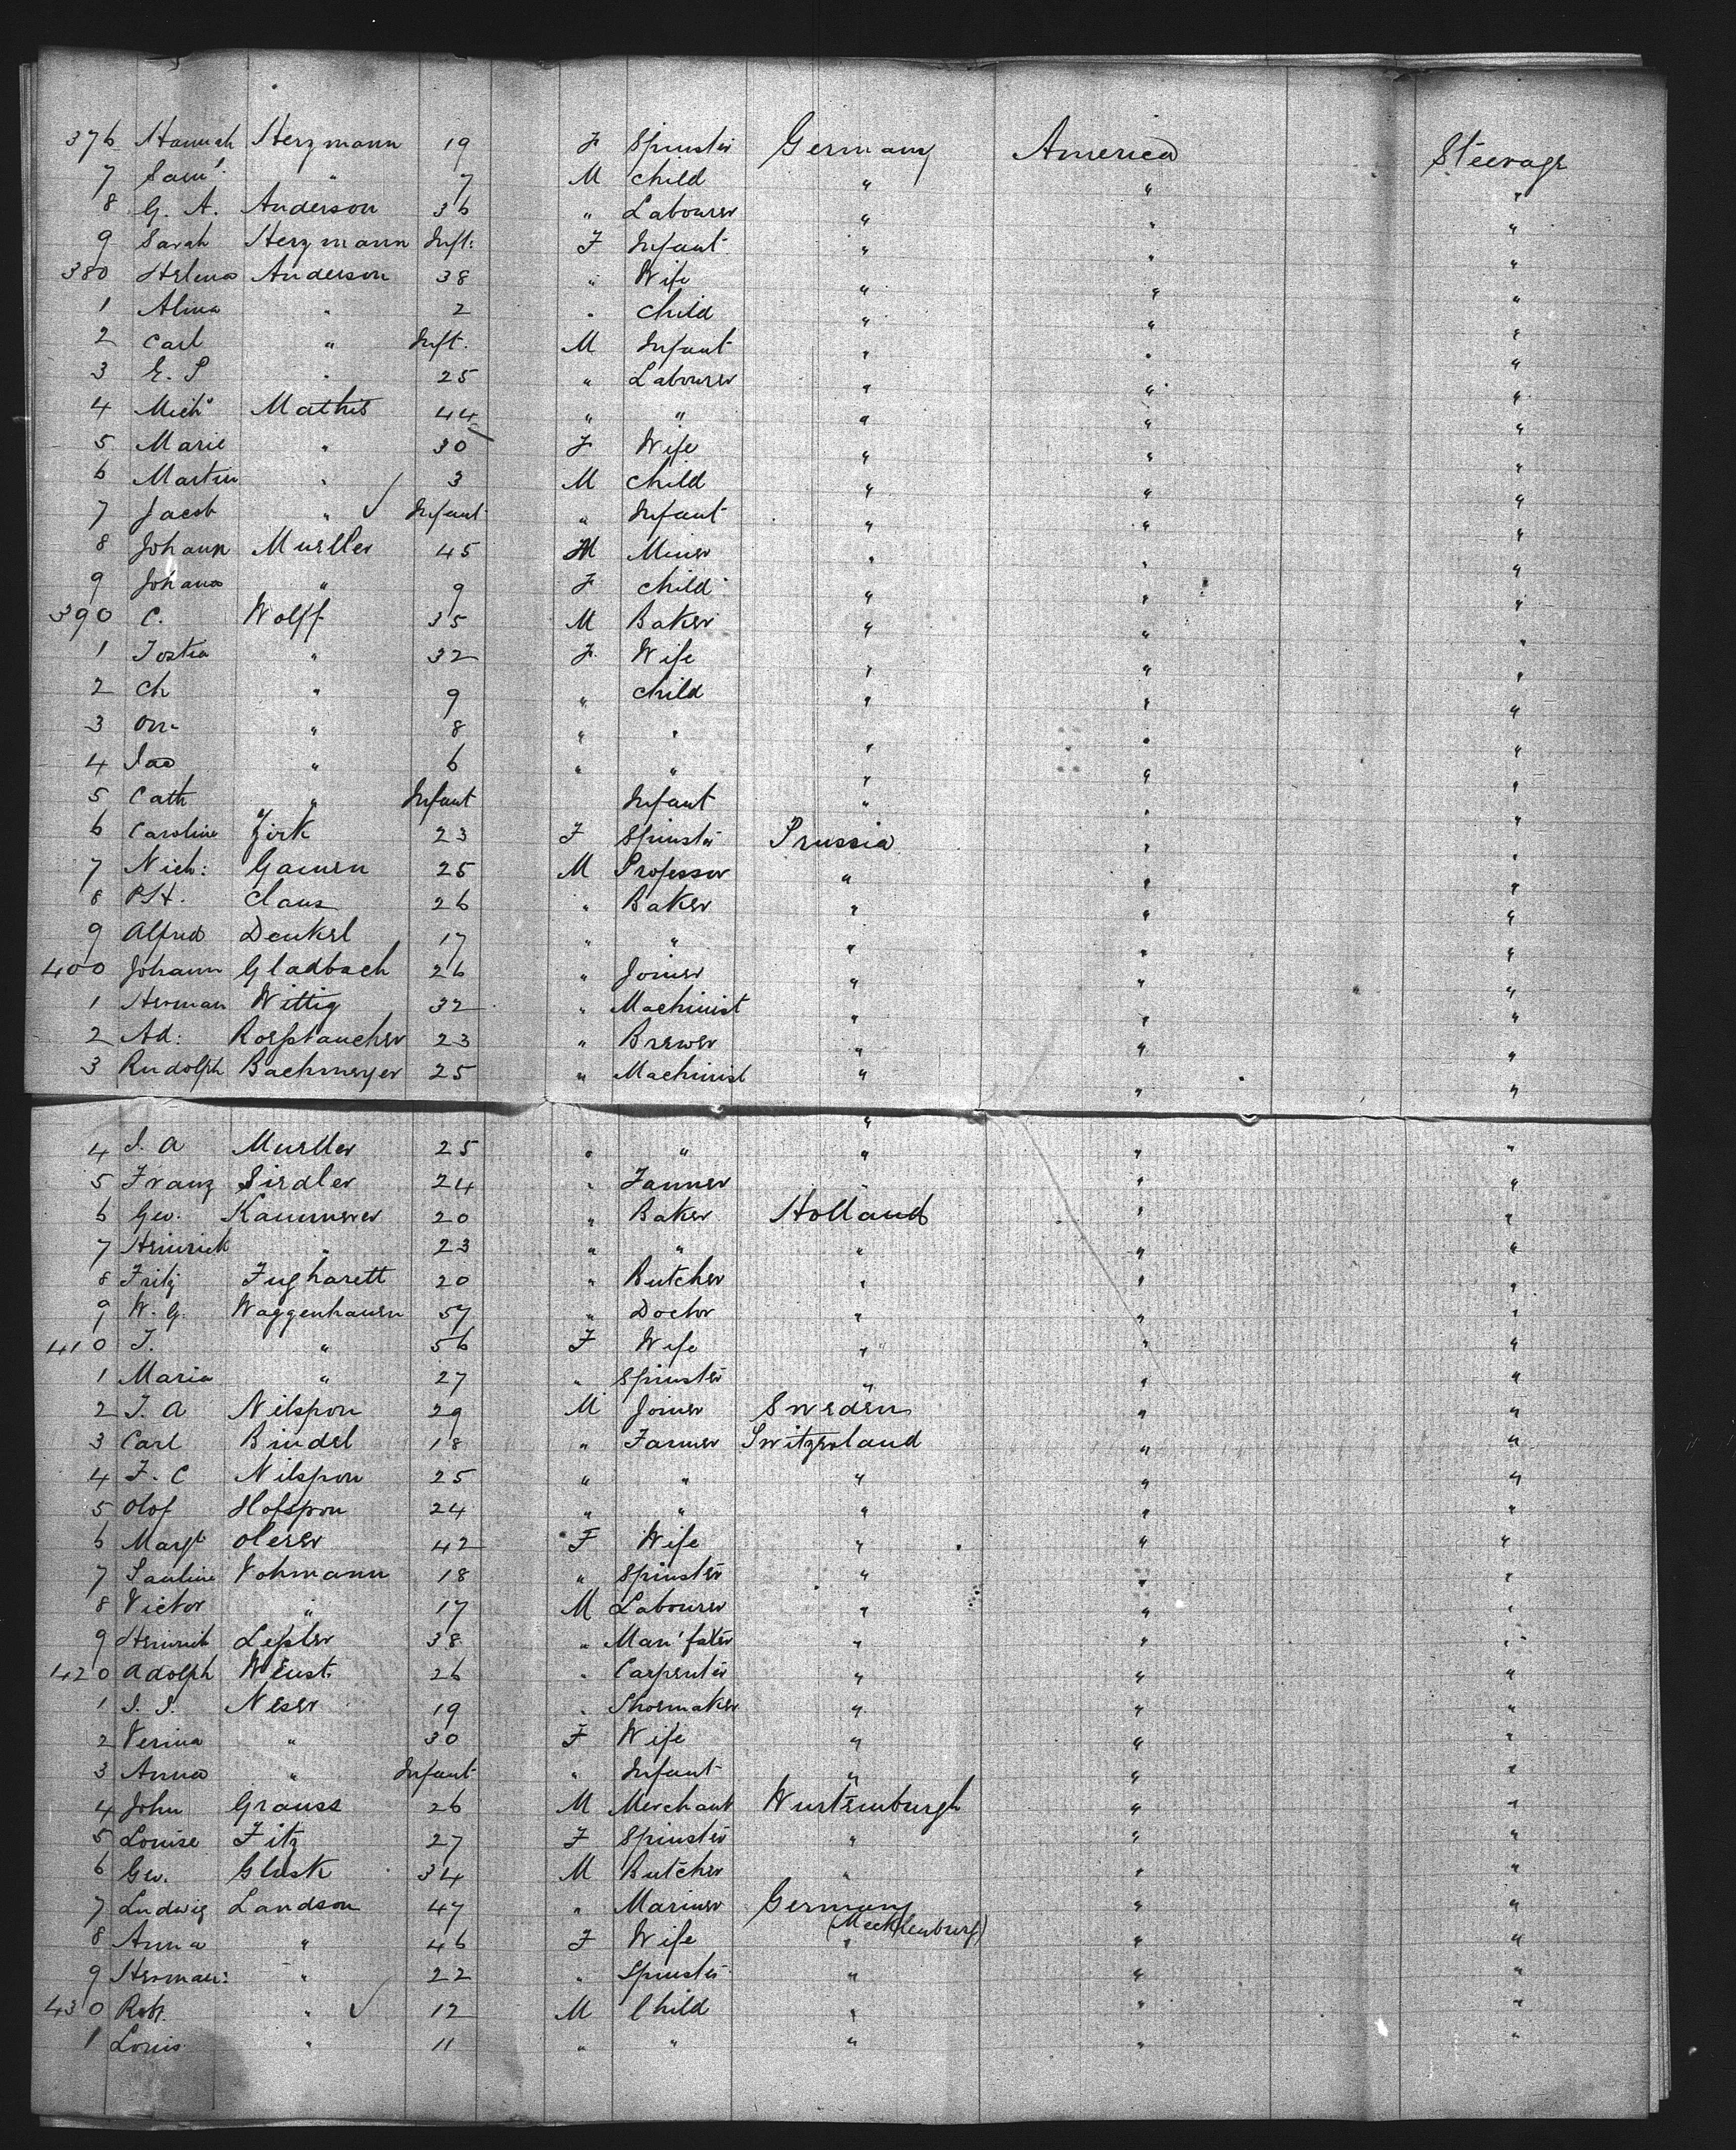 376 Hannah Herzmann 19 F Spinster Germany America Steerage
7 Saml. " 7 M Child " " "
8 G. A. Anderson 36 " Labourer " " "
9 Sarah Herzmann Inft. F Infant " " "
380 Helena Anderson 38 " Wife " " "
1 Alma " 2 " Child " " "
2 Carl " Inft. M Infant " " "
3 E. P " 25 " Labourer " " "
4 Mich Mathis 44 " " " " "
5 Marie " 30 F Wife " " "
6 Martin " 3 M Child " " "
7 Jacob " ✓ Infant " Infant " " "
8 Johann Mueller 45 M Miner " " "
9 Johana " 9 F Child " " "
390 C. Wolff 35 M Baker " " "
1 " 32 F Wife " " "
2 Ch " 9 " Child " " "
3 " 8 " " " " "
4 " 6 " " " " "
5 Cath " Infant Infant " " "
6 Caroline Zirk 23 F Spinster Prussia " "
7 Nich: Gamen 25 M Professor " " "
8 P.H. Claus 26 " Baker " " "
9 Alfred Denkel 17 " " " " "
400 Johann Gladbach 26 " Joiner " " "
1 Herman Wittig 32 " Machinist " " "
2 Ad: 23 " Brewer " " "
3 Rudolph Bachmeyer 25 " Machinist " " "
4 J. A Mueller 25 " " " " "
5 Franz Siedler 24 " Tanner " " "
6 Geo. Kammerer 20 " Baker Holland " "
7 Heinrich " 23 " " " " "
8 Fritz Fugharett 20 " Butcher " " "
9 W. G. Waggenhausen 57 " Doctor " " "
410 T. " 56 F Wife " " "
1 Maria " 27 " Spinster " " "
2 J. A Nilsson 29 M Joiner Sweden " "
3 Carl Bindel 18 " Farmer Switzerland " "
4 F. C Nilsson 25 " " " " "
5 Olof Hofsson 24 " " " " "
6 Margt Oleser 42 F Wife " " "
7 Pauline Vohmann 18 " Spinster " " "
8 Victor " 17 M Labourer " " "
9 Heinrich Lessler 38 " " " "
420 Adolph Weust 26 " Carpenter " " "
1 J. J. Neser 19 " Shoemaker " " "
2 Verina " 30 F Wife " " "
3 Anna " Infant " Infant " " "
4 John Grauss 26 M Merchant Wurtemburgh " "
5 Louise Fitz 27 F Spinster " " "
6 Geo. Glusk 34 M Butcher " " "
7 Ludwig Landson 47 " Mariner Germany " "
(Mecklenburg)
8 Anna " 46 F Wife " " "
9 Herman: " 22 " Spinster " " "
430 Robt. " ✓ 12 M Child " " "
1 Louis " 11 " " " " "